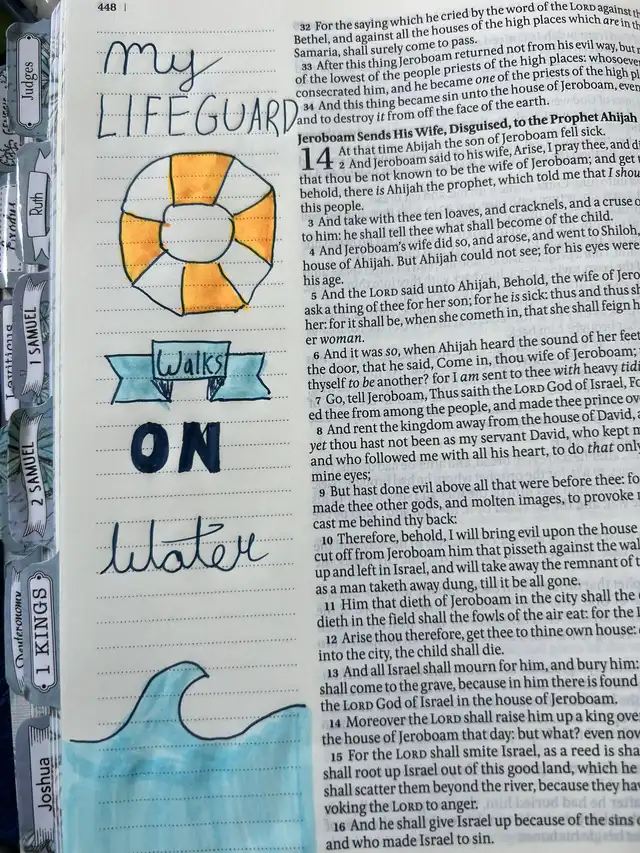 448
My
LIFEGUARD
Walks
ON
Water
32 For the saying which he cried by the word of the LORD against
Bethel, and against all the houses of the high places which are in
Samaria, shall surely come to pass.
33 After this thing Jeroboam returned not from his evil way, but
of the lowest of the people priests of the high places: whosoever
consecrated him, and he became one of the priests of the high
34 And this thing became sin unto the house of Jeroboam, even
and to destroy it from off the face of the earth.
Jeroboam Sends His Wife, Disguised, to the Prophet Ahijah
14 At that time Abijah the son of Jeroboam fell sick.
2 And Jeroboam said to his wife, Arise, I pray thee, and
that thou be not known to be the wife of Jeroboam; and get
behold, there is Ahijah the prophet, which told me that I
this people.
3 And take with thee ten loaves, and cracknels, and a cruse
to him: he shall tell thee what shall become of the child.
4 And Jeroboam's wife did so, and arose, and went to Shiloh,
house of Ahijah. But Ahijah could not see; for his eyes were
his age.
5 And the LORD said unto Ahijah, Behold, the wife of
ask a thing of thee for her son; for he is sick: thus and thus
her: for it shall be, when she cometh in, that she shall feign
er woman.
6 And it was so, when Ahijah heard the sound of her feet
the door, that he said, Come in, thou wife of Jeroboam;
thyself to be another? for I am sent to thee with heavy
7 Go, tell Jeroboam, Thus saith the LORD God of Israel,
ed thee from among the people, and made thee prince
8 And rent the kingdom away from the house of David,
yet thou hast not been as my servant David, who kept
and who followed me with all his heart, to do that only
mine eyes;
9 But hast done evil above all that were before thee:
made thee other gods, and molten images, to provoke
cast me behind thy back:
10 Therefore, behold, I will bring evil upon the house
cut off from Jeroboam him that pisseth against the
up and left in Israel, and will take away the remnant of
as a man taketh away dung, till it be all gone.
11 Him that dieth of Jeroboam in the city shall the
dieth in the field shall the fowls of the air eat: for the
12 Arise thou therefore, get thee to thine own house:
into the city, the child shall die.
13 And all Israel shall mourn for him, and bury him:
shall come to the grave, because in him there is found
the LORD God of Israel in the house of Jeroboam.
14 Moreover the LORD shall raise him up a king
the house of Jeroboam that day: but what? even now
15 For the LORD shall smite Israel, as a reed is
shall root up Israel out of this good land, which he
shall scatter them beyond the river, because they
voking the LORD to anger.
16 And he shall give Israel up because of the sins
and who made Israel to sin.
Judges
Ruth
1 SAMUEL
2 SAMUEL
1 KINGS
Deuteronomy
Joshua